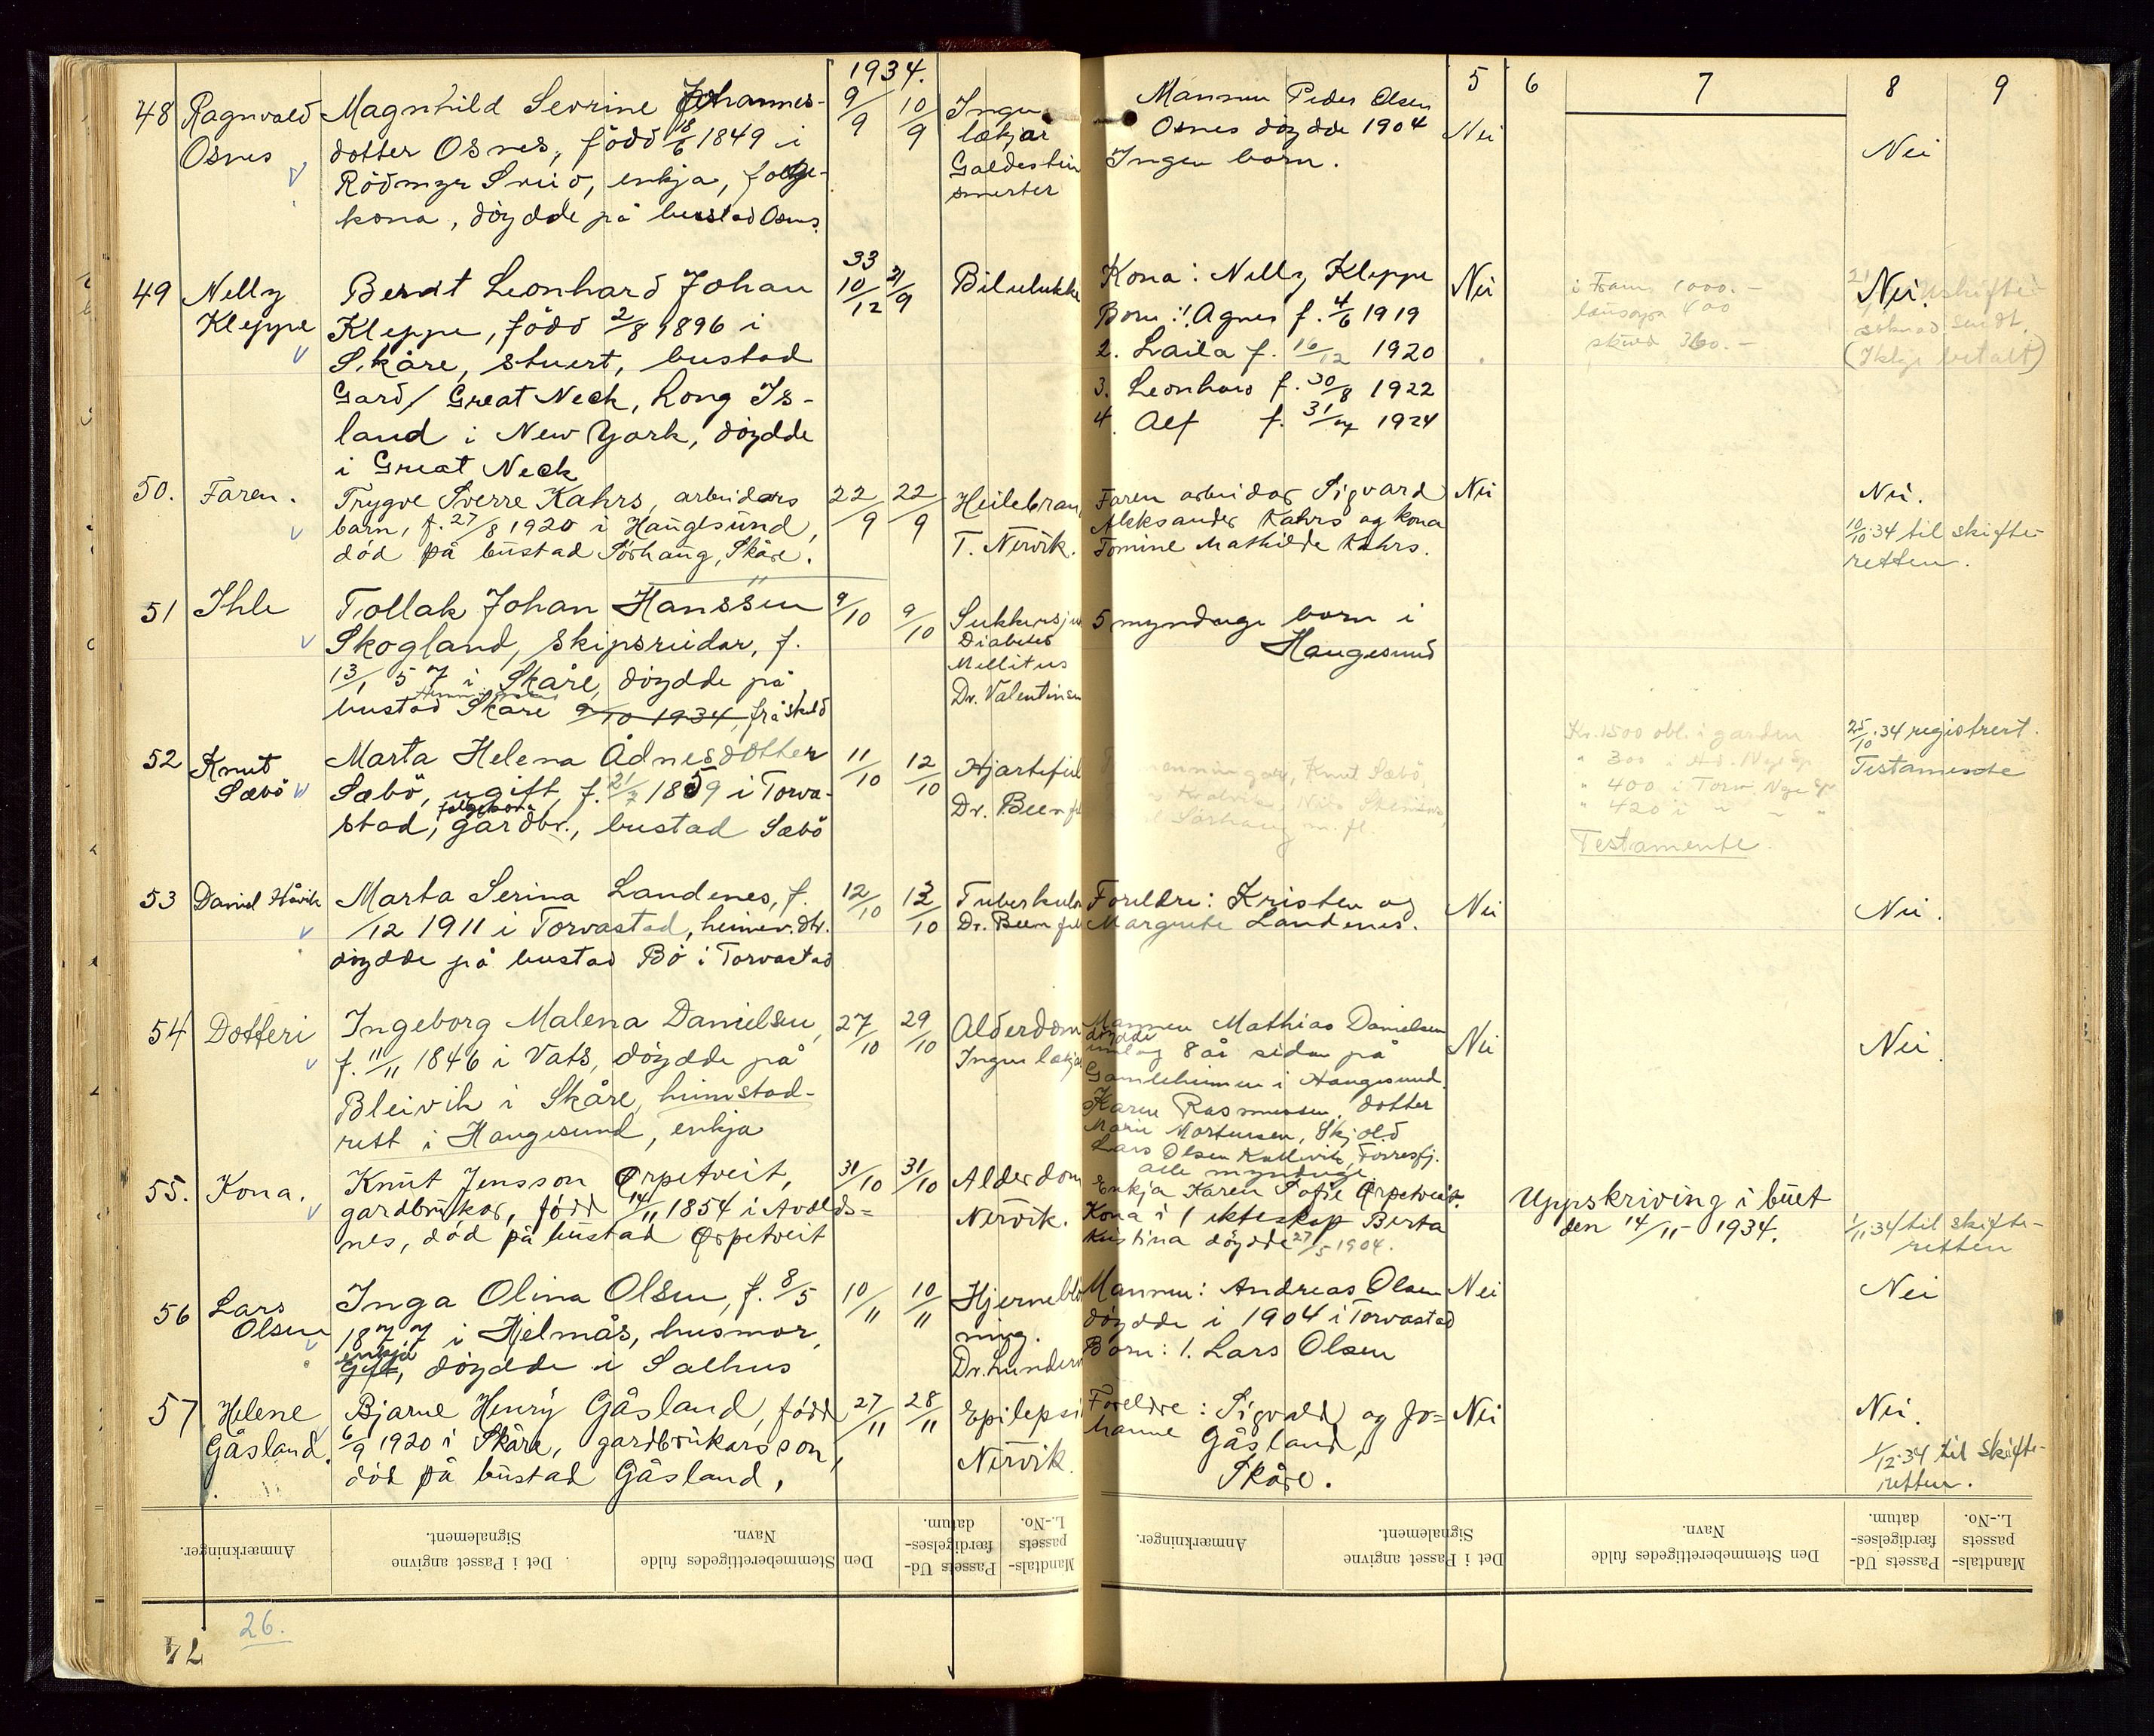 1934.
5 6 7 8 9
48 Ragnvald Osnes
Magnhild Sevrine Johannes-
dotter Osnes, född 18/6 1849 i
enkja, følge-
kona, döydde på bustad Osnes.
9/9 10/9
Ingen
lækjar
Galdestein
smerter
Mannen Peder Olsen
Osnes döydde 1904
Ingen born.
Nei
Nei
49 Nelly
Kleppe
Berdt Leonhard Johan
Kleppe, född 2/8 1896 i
Skåre, stuert, bustad
Gard/ Great Neck, Long Is-
land i New York, döydde
i Great Neck
33
10/12 21/9
Bilulukke
Kona: Nelly Kleppe
Born: 1. Agnes f. 4/6 1919
2. Laila f. 16/12 1920
3. Leonhard f. 30/8 1922
4. Alf f. 31/ 1924
Nei
i Fram 1000.-
400
skuld 360.-
Nei.
sendt.
(Ikkje betalt)
50. Faren.
Trygve Sverre Kahrs, arbeidars
barn, f. 27/8 1920 i Haugesund,
död på bustad Sörhaug, Skåre.
22/9 22/9
Heilebran
T. Nervik.
Faren arbeidar Sigvard
Aleksander Kahrs og kona
Tomine Mathilde Kahrs.
Nei
Nei.
10/10.34 til skifte-
retten.
51 Ihle
Tollak Johan Hanssen
Skogland, skipsreidar, f.
13/1 57 i Skåre, döydde på
bustad Skåre 9/10 1934, fråskild
9/10 9/10
Sukkersju
Diabetes
Mellitus
Dr. Valentinsen
5 myndige born i
Haugesund
52 Knut
Sæbö
Marta Helena Ådnesdotter
Sæbö, ugift, f. 21/7 1859 i Torva-
følgekona
stad, gardbr., bustad Sæbö
11/10 12/10
Hjartefeil
Dr. Been
Knut Sæbö,
Sörhaug m. fl.
Kr. 1500 obl. i garden
" 300 i
" 400 i Torv.
" 420 i
Testamente.
25/10.34 registrert.
Testamente
53 Daniel Håvik
Marta Serina Landenes, f.
/12 1911 i Torvastad, heimev. dtr.
döydde på bustad Bö i Torvastad
12/10 13/10
Tuberkulo
Dr. Been
Foreldre: Kristen og
Margrete Landenes.
Nei
Nei.
54 Dotteri
Ingeborg Malena Danielsen,
f. 11/11 1846 i Vats, döydde på
Bleivik i Skåre, heimstad-
rett i Haugesund, enkja
27/10 29/10
Alderdom
Ingen lækja
Mannen Mathias Danielsen
döydde
umlag 8 år sidan på
Gamleheimen i Haugesund.
Karen Rasmussen, dotter
Marie Mortensen, Skjold
Lars Olsen Kallevik, Förresfj.
alle myndige
Nei
Nei
55. Kona.
Knut Jensson Ørpetveit,
gardbrukar, född 14/11 1854 i Avalds=
nes, död på bustad Ørpetveit
31/10 31/10
Alderdom
Nervik.
Enkja Karen Sofie Ørpetveit.
Kona i 1 ekteskap Berta
Kristina döydde 27/5 1904.
Uppskriving i buet
den 14/11 - 1934.
1/11.34 til skifte-
retten
56 Lars
Olsen
Inga Olina Olsen, f. 8/5
1877 i Hjelmås, husmor,
enkja
gift, döydde i Salhus
10/11 10/11
Hjerneblö
ning.
Dr. Lunderv
Mannen: Andreas Olsen
döydde i 1904 i Torvastad
Born: 1. Lars Olsen
Nei
Nei
57 Helene
Gåsland.
Bjarne Henry Gåsland, född
6/9 1920 i Skåre, gardbrukarsson,
död på bustad Gåsland,
27/11 28/11
Epilepsi
Nervik.
Foreldre: Sigvald og Jo=
hanne Gåsland,
Skåre.
Nei
Nei.
1/12.34 til skifte-
retten.
Anmærkninger.
Det i Passet angivne
Signalement.
Den Stemmeberettigedes fulde
Navn.
Passets Ud-
færdigelses-
datum.
Mandtals-
passets
L.-No.
Anmærkninger.
Det i Passet angivne
Signalement.
Den Stemmeberettigedes fulde
Navn.
Passets Ud-
færdigelses-
datum.
Mandtals-
passets
L.-No.
26.
74